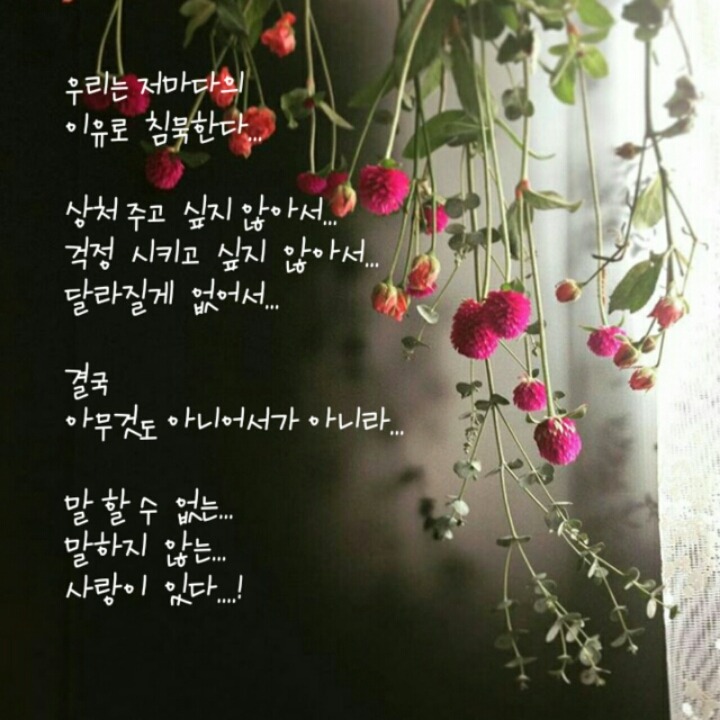 우리는 저마다의
이유로 침묵한다...
상처 주고 싶지 않아서...
걱정 시키고 싶지 않아서...
달라질게 없어서...
결국
아무것도 아니어서가 아니라...
말 할 수 없는...
말하지 않는...
사랑이 있다....!